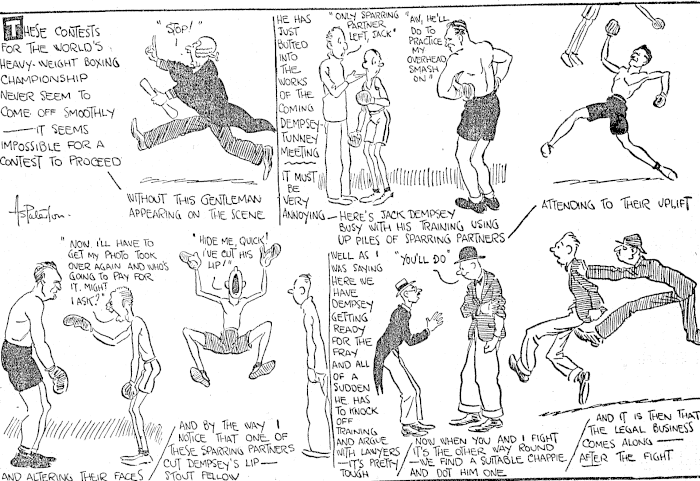 THESE CONTESTS
FOR THE WORLD'S
HEAVY-WEIGHT BOXING
CHAMPIONSHIP
NEVER SEEM TO
COME OFF SMOOTHLY
— IT SEEMS
IMPOSSIBLE FOR A
CONTEST TO PROCEED
"STOP!"
WITHOUT THIS GENTLEMAN
APPEARING ON THE SCENE
HE HAS
JUST
BUTTED
INTO
THE
WORKS
OF THE
COMING
DEMPSEY-
TUNNEY
MEETING
IT MUST
BE
VERY
ANNOYING —
"ONLY SPARRING
PARTNER
LEFT, JACK"
"AW, HE'LL
DO TO
PRACTICE
MY
OVERHEAD
SMASH
ON"
HERE'S JACK DEMPSEY
BUSY WITH HIS TRAINING USING
UP PILES OF SPARRING PARTNERS
ATTENDING TO THEIR UPLIFT
"NOW, I'LL HAVE TO
GET MY PHOTO TOOK
OVER AGAIN AND WHO'S
GOING TO PAY FOR
IT, MIGHT
I ASK?"
AND ALTERING THEIR FACES
"HIDE ME, QUICK!
I'VE CUT HIS
LIP!"
AND BY THE WAY I
NOTICE THAT ONE OF
THESE SPARRING PARTNERS
CUT DEMPSEY'S LIP —
STOUT FELLOW
WELL AS I
WAS SAYING
HERE WE
HAVE
DEMPSEY
GETTING
READY
FOR THE
FRAY
AND ALL
OF A
SUDDEN
HE HAS
TO KNOCK
OFF
TRAINING
AND ARGUE
WITH LAWYERS
— IT'S PRETTY
TOUGH
"YOU'LL DO"
NOW WHEN YOU AND I FIGHT
IT'S THE OTHER WAY ROUND
— WE FIND A SUITABLE CHAPPIE
AND DOT HIM ONE
AND IT IS THEN THAT
THE LEGAL BUSINESS
COMES ALONG —
AFTER THE FIGHT